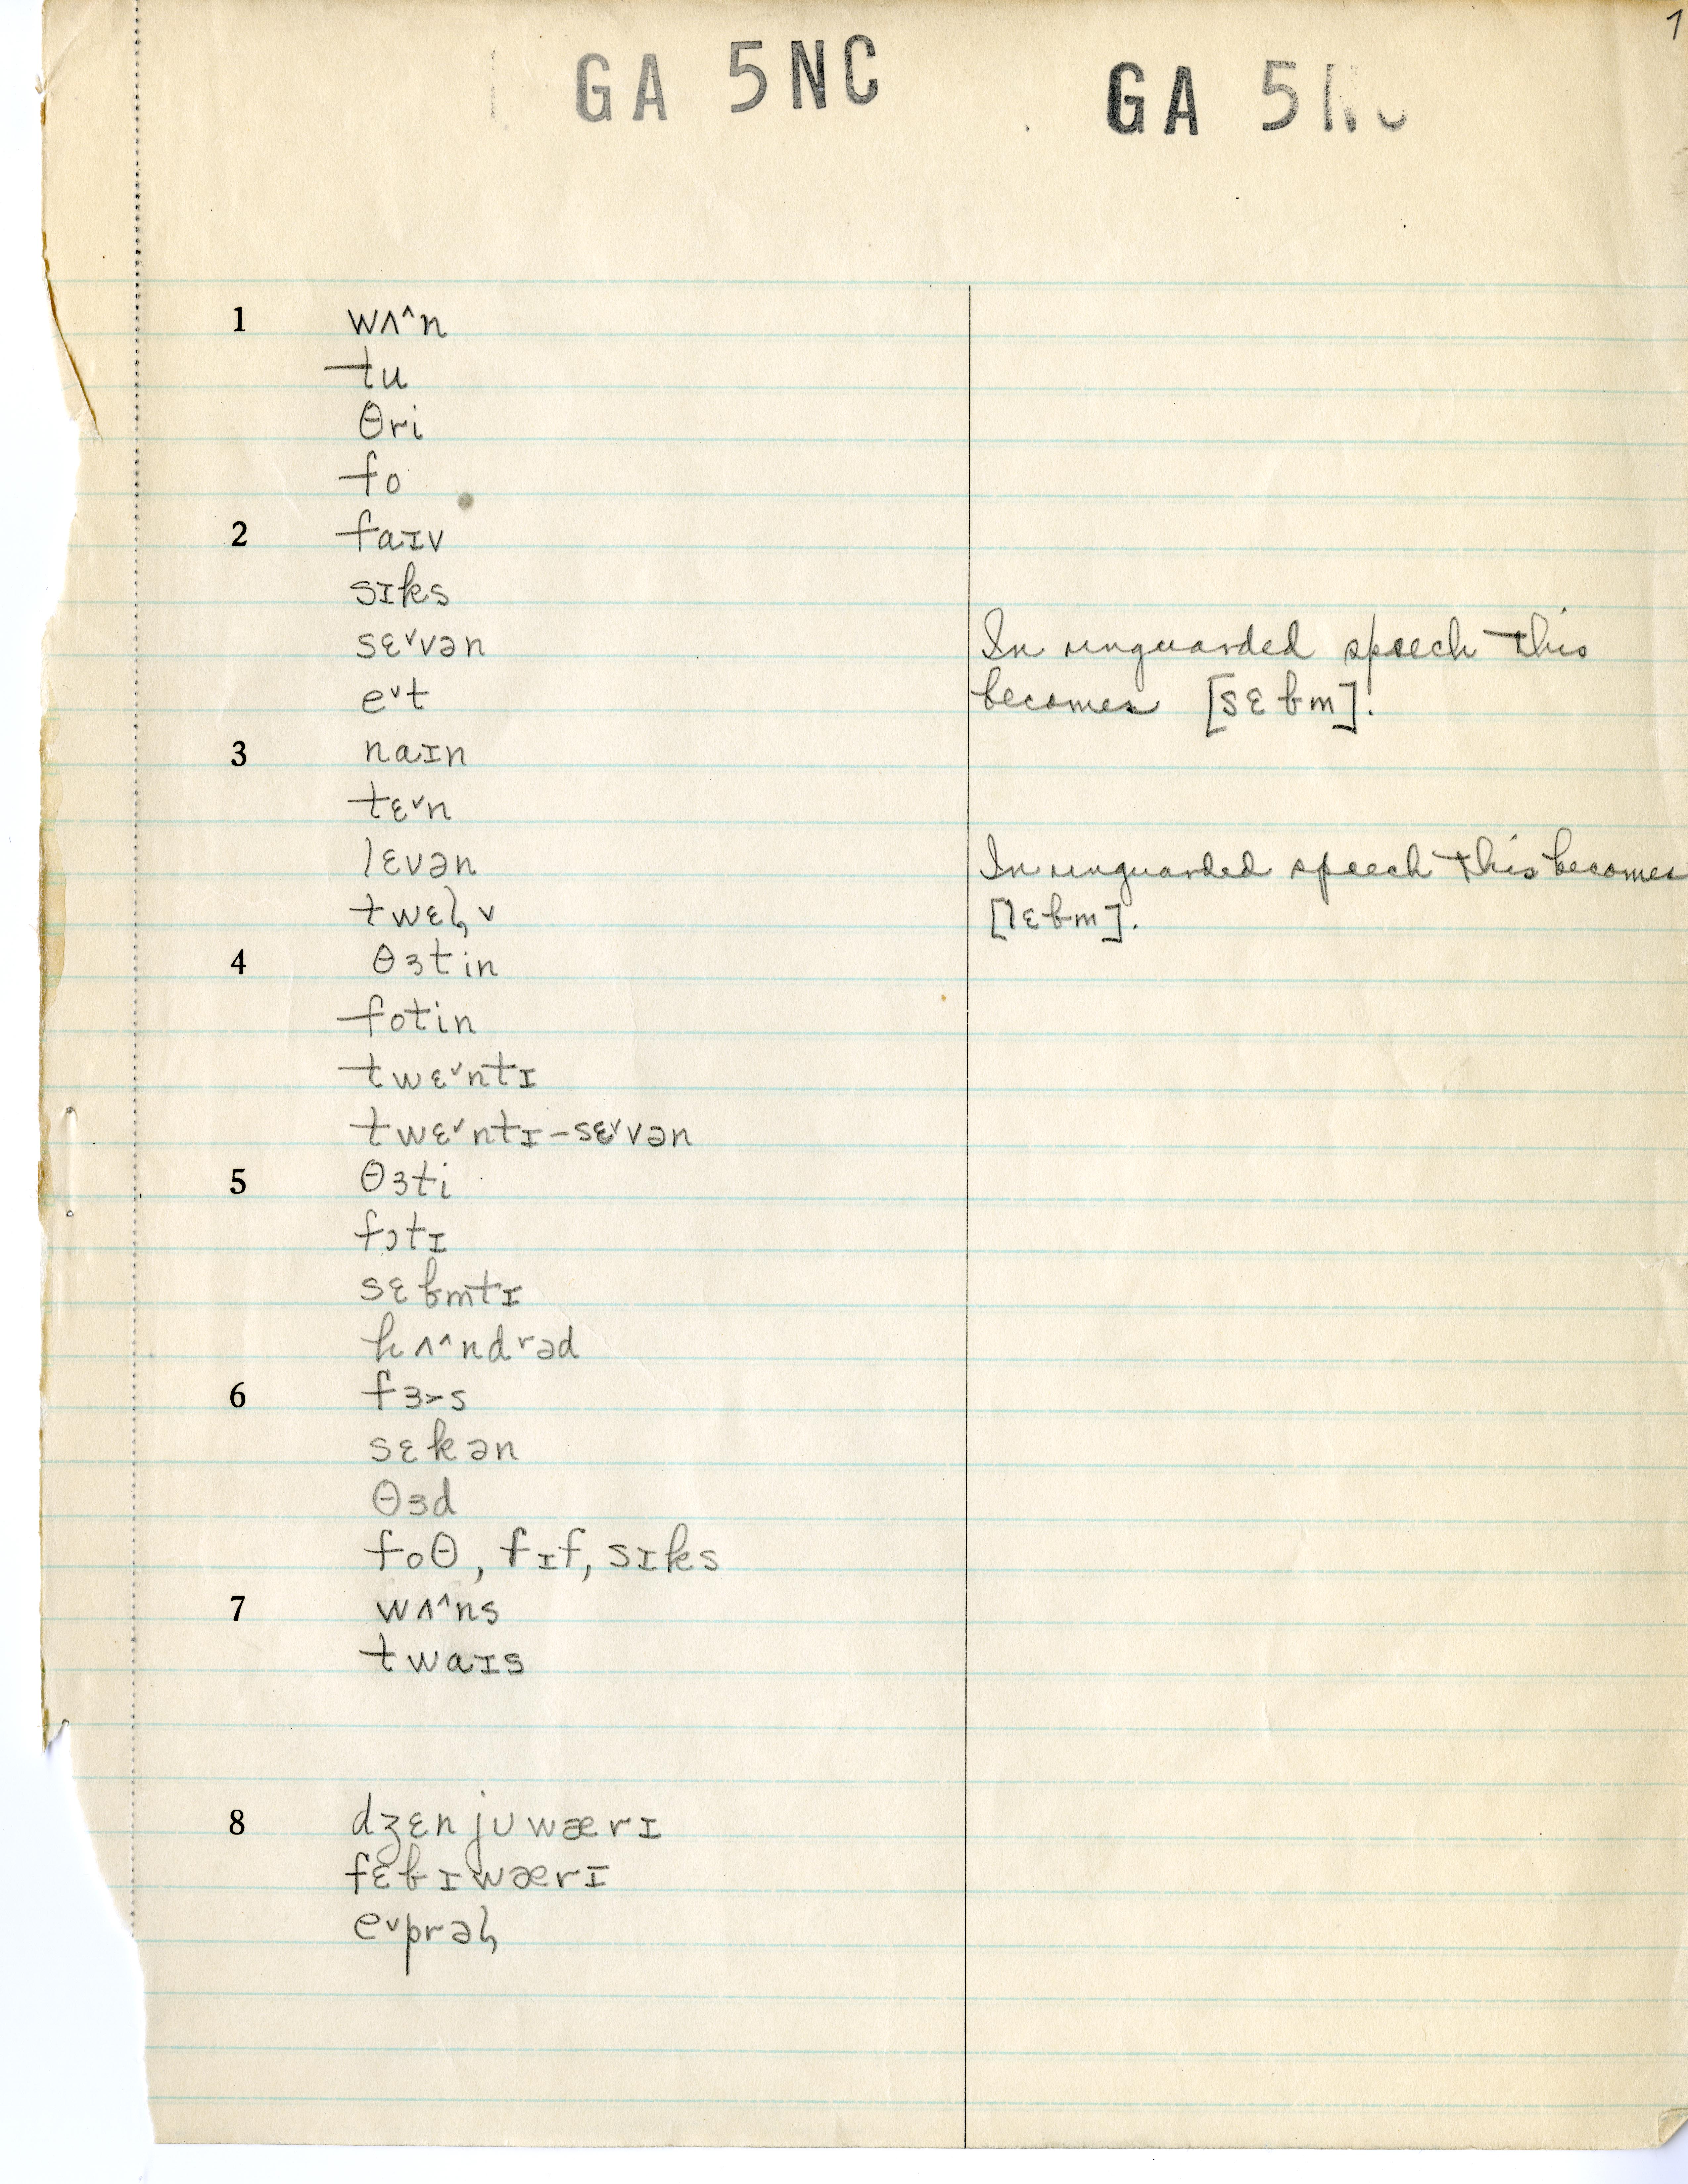 1
GA 5NC GA 5NC
1 wʌ^n
tu
θri
fo
2 faɪv
sɪks
sɛ˅vən In unguarded speech this
e˅t becomes [sɛbm].
3 naɪn
tɛ˅n
lɛvən In unguarded speech this becomes
twɛɫv [lɛbm].
4 θɜtin
fotin
twɛ˅ntɪ
twɛ˅ntɪ-sɛ˅vən
5 θɜti
fɔtɪ
sɛbmtɪ
hʌ^ndrəd
6 fɜ˃s
sɛkən
θɜd
foθ, fɪf, sɪks
7 wʌ^ns
twaɪs
8 dʒɛnjuwærɪ
fɛbɪwærɪ
e˅prəɫ